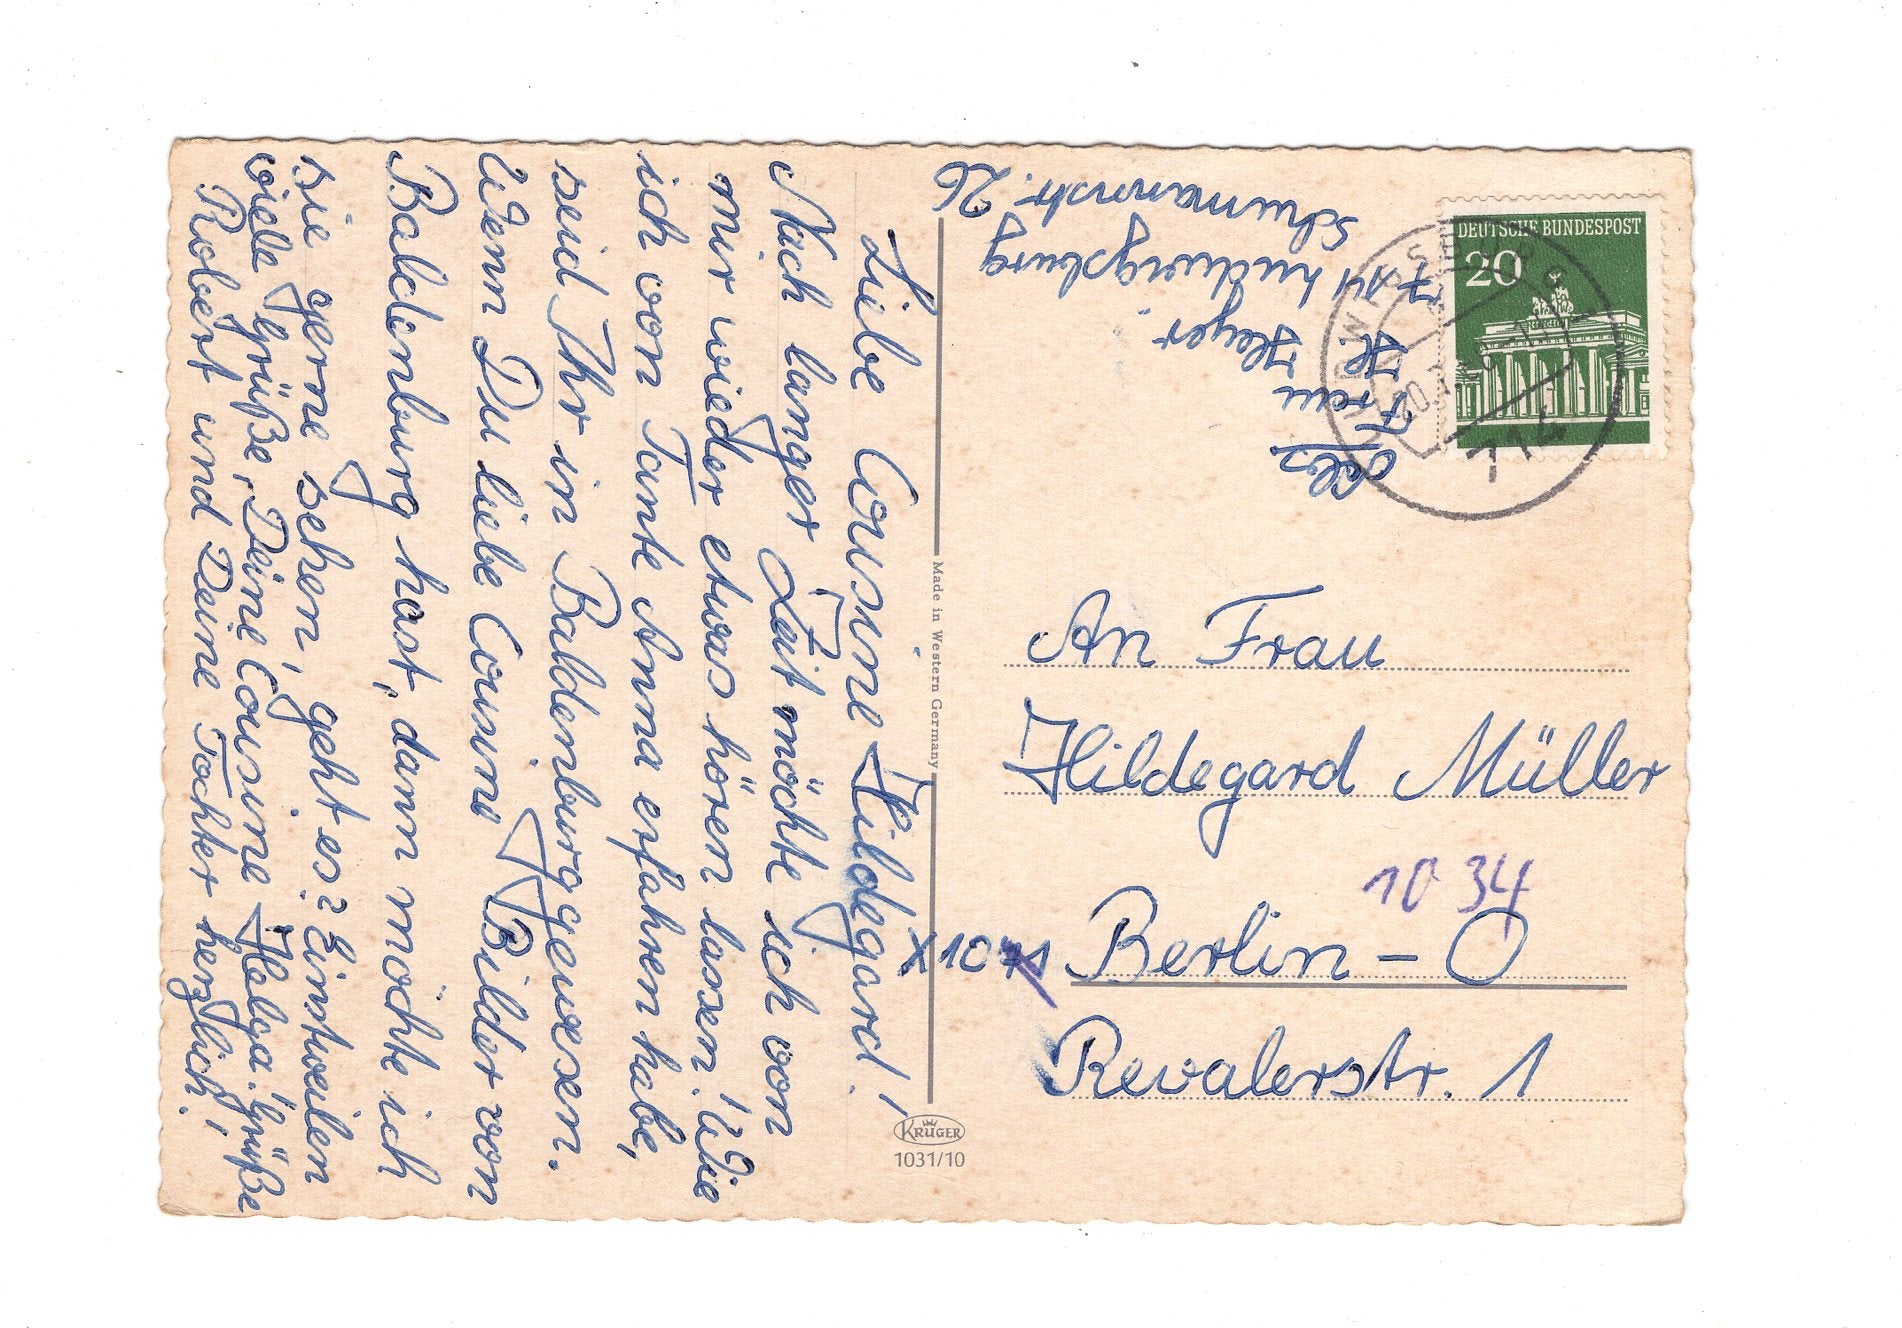 Liebe Cousine Hildegard!
Nach langer Zeit möchte ich von
mir wieder etwas hören lassen. Wie
ich von Tante Anna erfahren habe,
seid Ihr in Baldenburg gewesen.
Wenn Du liebe Cousine Bilder von
Baldenburg hast, dann möchte ich
sie gerne sehen, geht es? Einstweilen
viele Grüße, Deine Cousine Helga. Grüße
Robert und Deine Tochter herzlich!
Abs
Frau H. Heyer.
714 Ludwigsburg
Schumannstr. 26
DEUTSCHE BUNDESPOST
20
714
Made in Western Germany
An Frau
Hildegard Müller
10 34
X 10
Berlin - O
Revalerstr. 1
KRÜGER
1031/10